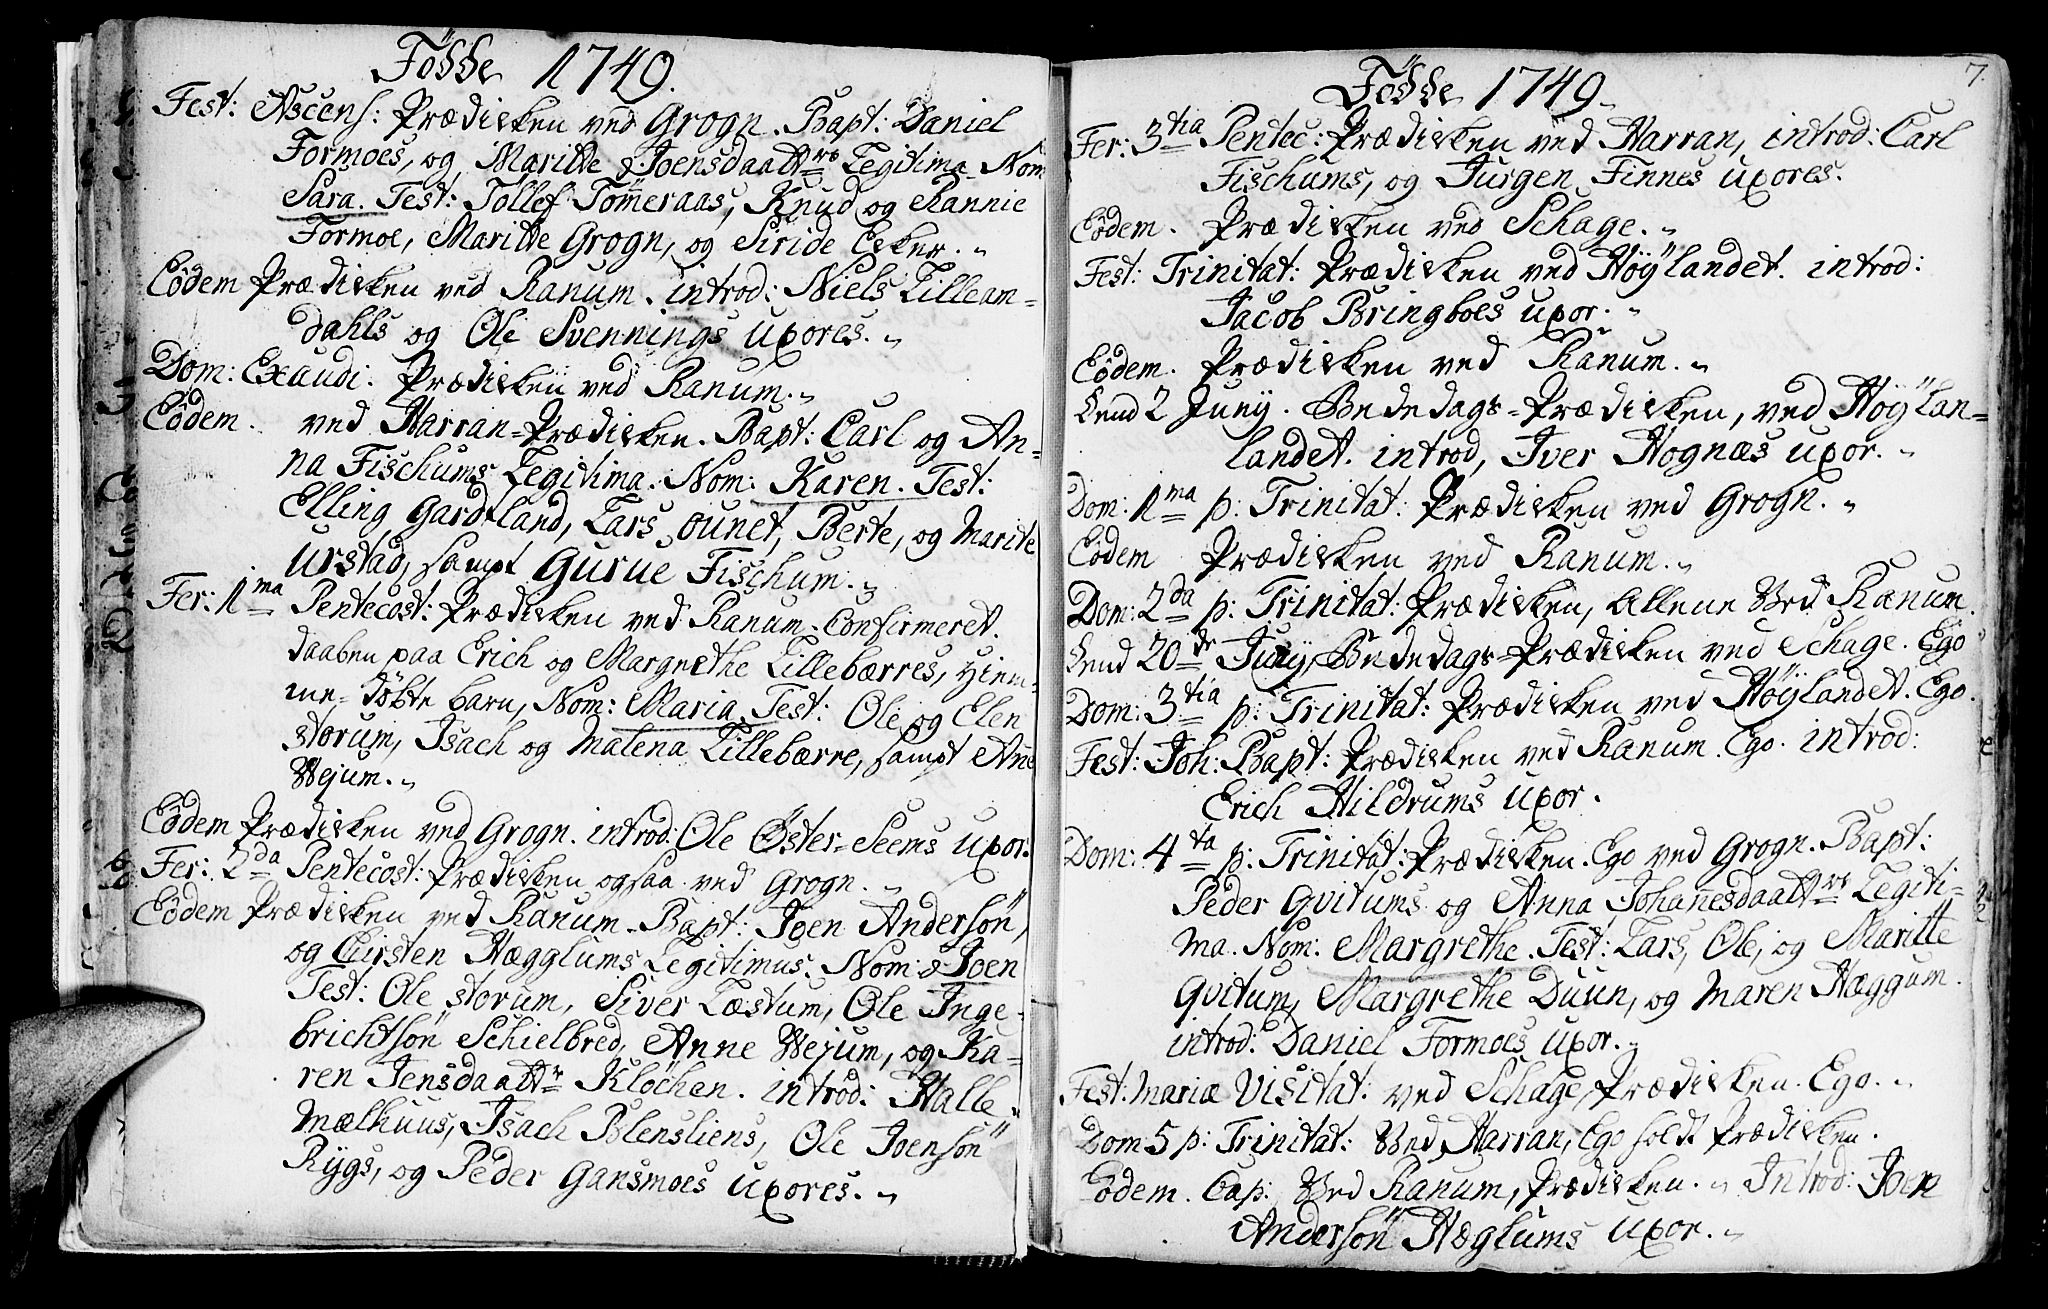 Födde 1749.
Fest: Ascens: Prædicken ved Grogn. Bapt: Daniel
Formoes, og Maritte Joensdaattrs Legitima. Nom
Sara. Test: Tollef Tömmeraas, Knud og Rannie
Formoe, Maritte Grogn, og Siride Eeker.
Eodem Prædicken ved Ranum. introd: Niels Lilleam-
dahls og Ole Svennings uxores.
Dom: Exaudi. Prædicken ved Ranum.
Eodem. ved Harran Prædicken. Bapt: Carl og An-
na Fischums Legitima. Nom: Karen. Test:
Elling Gardtland, Lars ounet, Berte, og Marite
urstad, sampt Gurue Fischum.
Fer: 1ma Pentecost: Prædicken ved Ranum. Confirmeret
daaben paa Erich og Margrethe Lillebærres, Hiem-
me-döbte barn, Nom: Maria. Test: Ole og Elen
storum, Isach og Malena Lillebærre, sampt Ane
Wejum.
Eodem Prædicken ved Grogn. introd: Ole Öster-Seems uxor.
Fer: 2da Pentecost: Prædicken ogsaa ved Grogn.
Eodem Prædicken ved Ranum. Bapt: Joen Andersön,
og Chirsten Hægglums Legitimus. Nom: Joen
Test: Ole storum, Siver Læstum, Ole Inge-
brichtsön Schielbred, Anne Wejum, og Ka-
ren Jensdaattr Klöchen. introd: Halle
Mælhuus, Isach Blensliens, Ole Joensön
Rygs, og Peder Gansmoes uxores.
7.
Födde 1749.
Fer: 3tia Pentec: Prædicken ved Harran, introd: Carl
Fischums, og Jurgen Finnes uxores.
Eodem. Prædicken ved Schage.
Fest: Trinitat: Prædicken ved Höylandet. introd:
Jacob Bringboes uxor.
Eodem. Prædicken ved Ranum.
Dend 2 Juny. Bededags-Prædicken, ved Höylan-
landet. introd, Iver Hognæs uxor.
Dom: 1ma p: Trinitat: Prædicken ved Grogn.
Eodem Prædicken ved Ranum.
Dom: 2da p: Trinitat: Prædicken, allene Ved Ranum.
Dend 20de Juny, Bededags-Prædicken ved Schage. Ego
Dom: 3tia p: Trinitat: Prædicken ved Höylandet. Ego.
Fest: Joh: Bapt: Prædicken ved Ranum. Ego. introd:
Erich Hildrums uxor.
Dom: 4ta p: Trinitat: Prædicken. Ego ved Grogn. Bapt:
Peder Qvitums og Anna Johannesdaattrs Legiti-
ma. Nom: Margrethe. Test: Lars, Ole, og Maritte
Qvitum, Margrethe Duun, og Maren Hæggum.
introd: Daniel Formoes uxor.
Fest: Mariæ Visitat: ved Schage, Prædicken. Ego.
Dom 5 p: Trinitat: Ved Harran, Ego holdt Prædicken.
Eodem. Cap: Ved Ranum, Prædicken. Introd: Joen
Andersön Hæglums uxor.